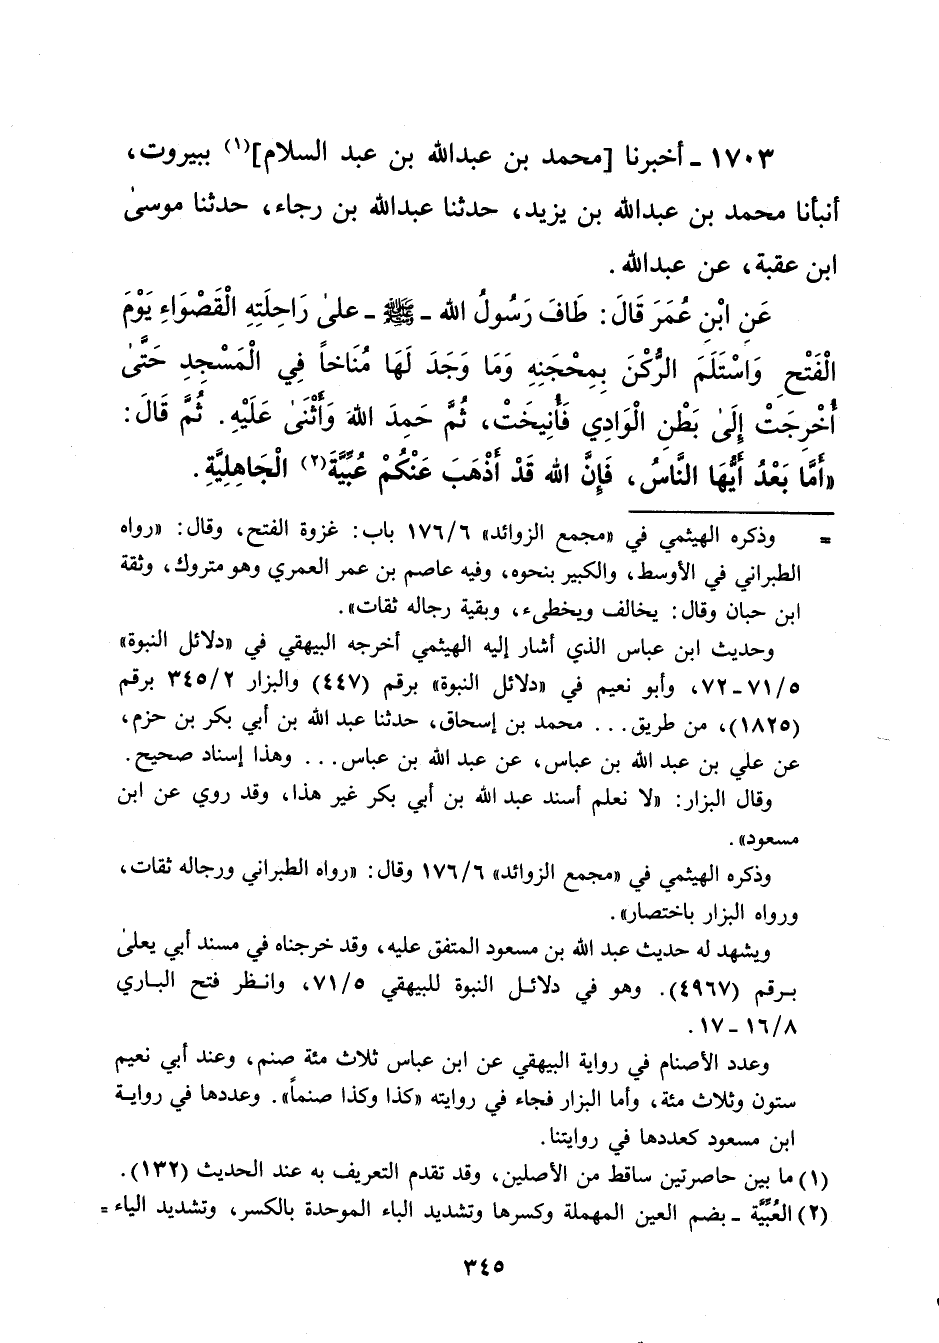 ١٧٠٣ ـ أخبرنا [محمد بن عبدالله بن عبد السلام]⁽¹⁾ ببيروت،
أنبأنا محمد بن عبدالله بن يزيد، حدثنا عبدالله بن رجاء، حدثنا موسىٰ
ابن عقبة، عن عبدالله.
عَنِ ابْنِ عُمَرَ قَالَ: طَافَ رَسُولُ الله ـ ﷺ ـ علىٰ رَاحِلَتِهِ الْقَصْوَاءِ يَوْمَ
الْفَتْحِ وَاسْتَلَمَ الرُّكْنَ بِمِحْجَنِهِ وَمَا وَجَدَ لَهَا مُنَاخاً فِي الْمَسْجِدِ حَتَّىٰ
أُخْرِجَتْ إِلَىٰ بَطْنِ الْوَادِي فَأُنِيخَتْ، ثُمَّ حَمِدَ اللهَ وَأَثْنَىٰ عَلَيْهِ. ثُمَّ قَالَ:
«أَمَّا بَعْدُ أَيُّهَا النَّاسُ، فَإِنَّ الله قَدْ أَذْهَبَ عَنْكُمْ عُبِّيَّةَ⁽²⁾ الْجَاهِلِيَّةِ.
= وذكره الهيثمي في «مجمع الزوائد» ١٧٦/٦ باب: غزوة الفتح، وقال: «رواه
الطبراني في الأوسط، والكبير بنحوه، وفيه عاصم بن عمر العمري وهو متروك، وثقة
ابن حبان وقال: يخالف ويخطىء، وبقية رجاله ثقات».
وحديث ابن عباس الذي أشار إليه الهيثمي أخرجه البيهقي في «دلائل النبوة»
٧١/٥ ـ ٧٢، وأبو نعيم في «دلائل النبوة» برقم (٤٤٧) والبزار ٣٤٥/٢ برقم
(١٨٢٥)، من طريق... محمد بن إسحاق، حدثنا عبد الله بن أبي بكر بن حزم،
عن علي بن عبد الله بن عباس، عن عبد الله بن عباس... وهذا إسناد صحيح.
وقال البزار: «لا نعلم أسند عبد الله بن أبي بكر غير هذا، وقد روي عن ابن
مسعود».
وذكره الهيثمي في «مجمع الزوائد» ١٧٦/٦ وقال: «رواه الطبراني ورجاله ثقات،
ورواه البزار باختصار».
ويشهد له حديث عبد الله بن مسعود المتفق عليه، وقد خرجناه في مسند أبي يعلىٰ
برقم (٤٩٦٧). وهو في دلائل النبوة للبيهقي ٧١/٥، وانظر فتح الباري
١٦/٨ ـ ١٧.
وعدد الأصنام في رواية البيهقي عن ابن عباس ثلاث مئة صنم، وعند أبي نعيم
ستون وثلاث مئة، وأما البزار فجاء في روايته «كذا وكذا صنماً». وعددها في رواية
ابن مسعود كعددها في روايتنا.
(١) ما بين حاصرتين ساقط من الأصلين، وقد تقدم التعريف به عند الحديث (١٣٢).
(٢) العُبِّيَّة ـ بضم العين المهملة وكسرها وتشديد الباء الموحدة بالكسر، وتشديد الياء =
٣٤٥